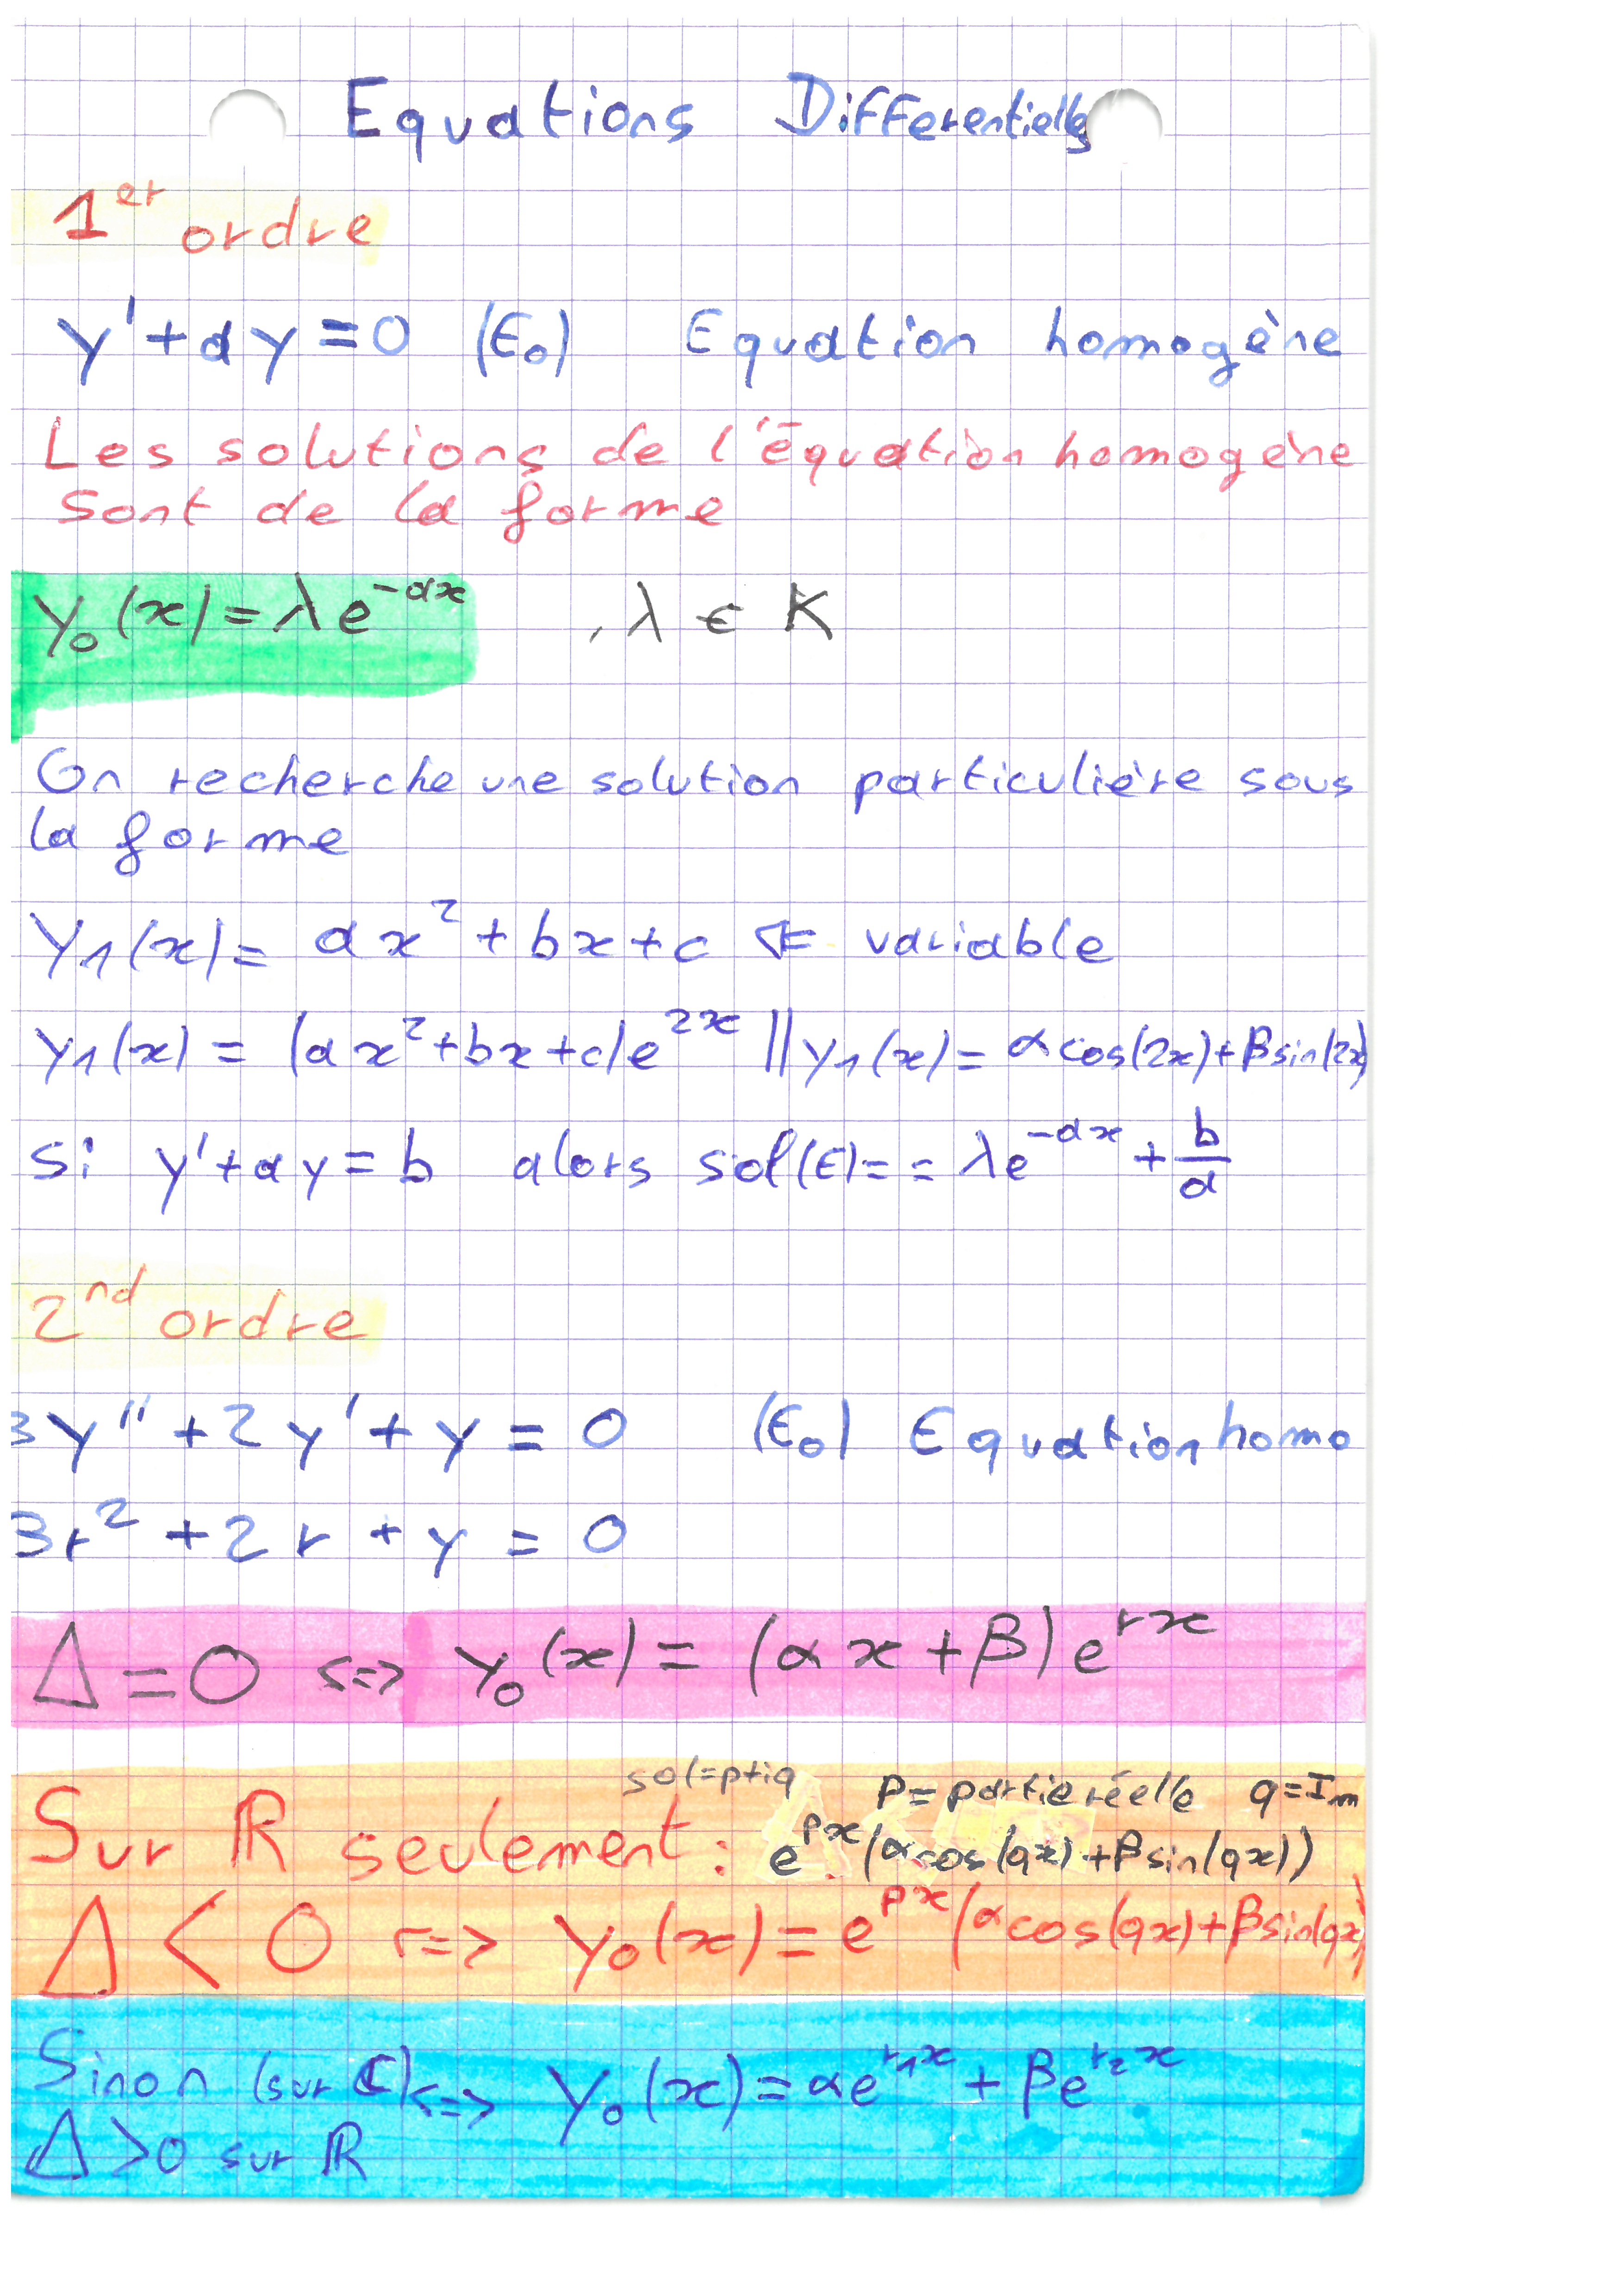 Equations Differentielles
1er ordre
y' + ay = 0 (E₀) Equation homogène
Les solutions de l'équation homogène
sont de la forme
y₀(x) = λe^{-ax} , λ ∈ K
On recherche une solution particulière sous
la forme
y₁(x) = ax² + bx + c ⇐ variable
y₁(x) = (ax² + bx + c)e^{2x} || y₁(x) = αcos(2x) + βsin(2x)
Si y' + ay = b alors sol(E) = = λe^{-ax} + b/a
2nd ordre
3y'' + 2y' + y = 0 (E₀) Equation homo
3r² + 2r + y = 0
Δ = 0 <=> y₀(x) = (αx + β)e^{rx}
sol=p+iq p = partie réelle q = Im
Sur ℝ seulement : e^{px}(αcos(qx) + βsin(qx))
Δ < 0 <=> y₀(x) = e^{px}(αcos(qx) + βsin(qx)
Sinon (sur ℂ) <=> y₀(x) = αe^{r₁x} + βe^{r₂x}
Δ > 0 sur ℝ